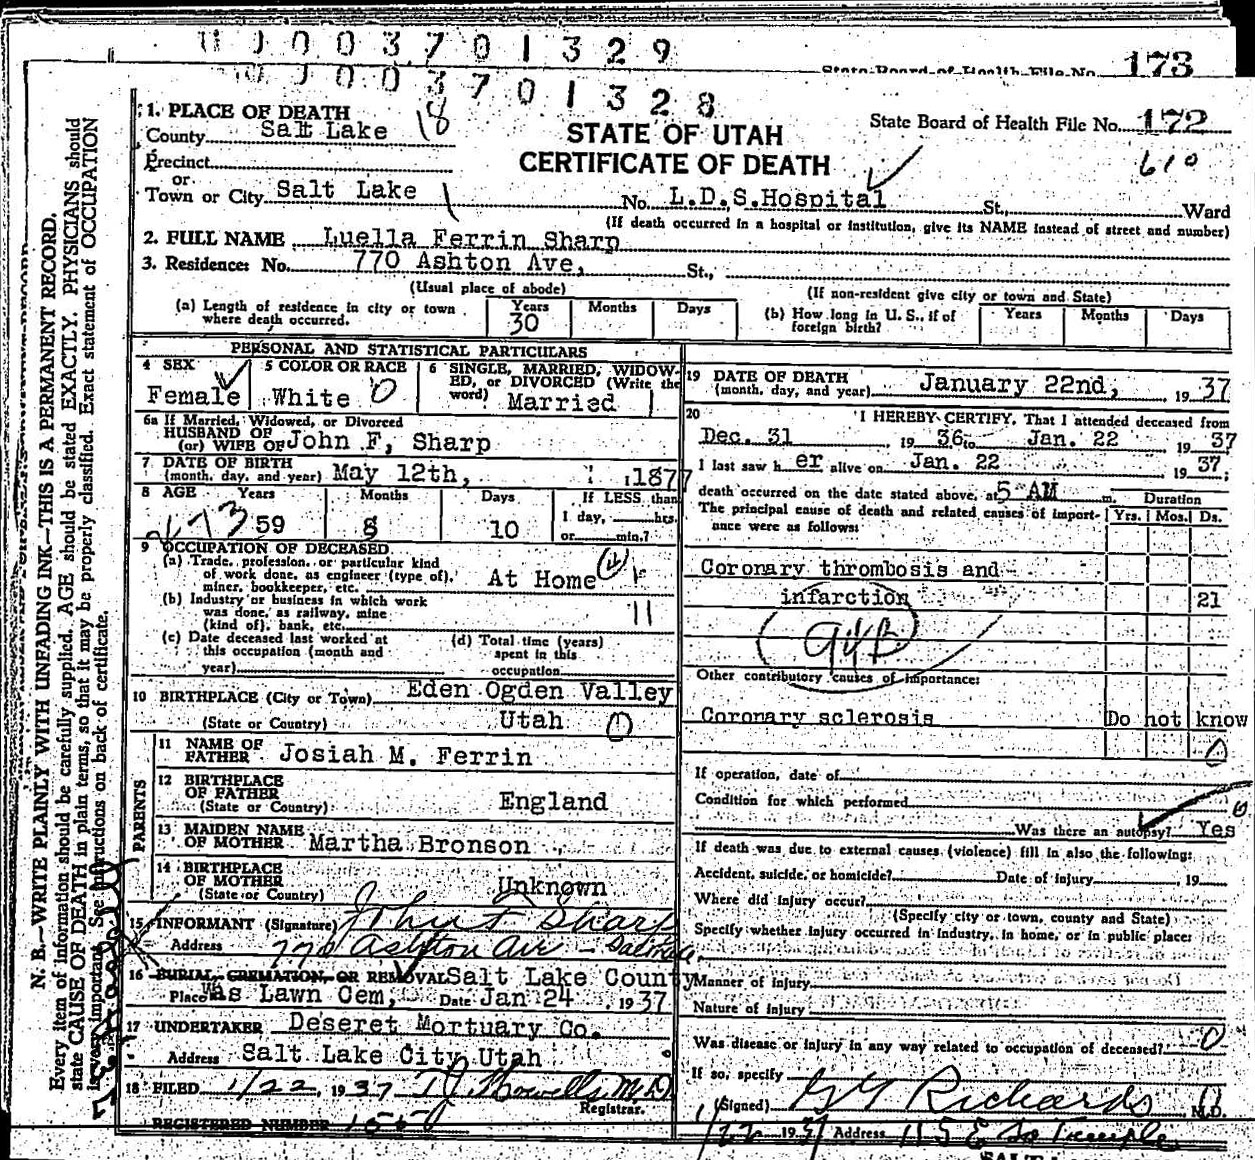 0003701329
173
0003701328
State Board of Health File No. 172
610
1. PLACE OF DEATH
County Salt Lake 18
STATE OF UTAH
CERTIFICATE OF DEATH
Precinct
or
Town or City Salt Lake No. L.D.S.Hospital St., Ward
(If death occurred in a hospital or institution, give its NAME instead of street and number)
2. FULL NAME Luella Ferrin Sharp
3. Residence: No. 770 Ashton Ave, St.,
(Usual place of abode) (If non-resident give city or town and State)
(a) Length of residence in city or town where death occurred. Years 30 Months Days
(b) How long in U. S., if of foreign birth? Years Months Days
PERSONAL AND STATISTICAL PARTICULARS
4 SEX Female
5 COLOR OR RACE White 0
6 SINGLE, MARRIED, WIDOWED, or DIVORCED (Write the word) Married
6a If Married, Widowed, or Divorced
HUSBAND OF
(or) WIFE OF John F, Sharp
7 DATE OF BIRTH
(month, day, and year) May 12th, 1877
8 AGE Years 59 Months 8 Days 10 If LESS than
1 day, hrs.
or min.?
9 OCCUPATION OF DECEASED
(a) Trade, profession, or particular kind
of work done, as engineer (type of),
miner, bookkeeper, etc. At Home
(b) Industry or business in which work
was done, as railway, mine
(kind of), bank, etc.
(c) Date deceased last worked at
this occupation (month and
year)
(d) Total time (years)
spent in this
occupation
10 BIRTHPLACE (City or Town) Eden Ogden Valley
(State or Country) Utah
PARENTS
11 NAME OF
FATHER Josiah M. Ferrin
12 BIRTHPLACE
OF FATHER
(State or Country) England
13 MAIDEN NAME
OF MOTHER Martha Bronson
14 BIRTHPLACE
OF MOTHER
(State or Country) Unknown
15 INFORMANT (Signature) John F Sharp
Address 770 Ashton Ave
16 BURIAL, CREMATION, OR REMOVAL Salt Lake County
Place Was Lawn Cem, Date Jan 24 1937
17 UNDERTAKER Deseret Mortuary Co.
Address Salt Lake City Utah
18 FILED 1/22, 1937 M.D.
Registrar.
REGISTERED NUMBER
19 DATE OF DEATH
(month, day, and year) January 22nd, 1937
20 I HEREBY CERTIFY, That I attended deceased from
Dec. 31, 1936 to Jan. 22 1937
I last saw her alive on Jan. 22 1937;
death occurred on the date stated above, at 5 AM m.
The principal cause of death and related causes of importance were as follows:
Duration
Yrs. Mos. Ds.
Coronary thrombosis and
infarction 21
94B
Other contributory causes of importance:
Coronary sclerosis Do not know
If operation, date of
Condition for which performed
Was there an autopsy? Yes
If death was due to external causes (violence) fill in also the following:
Accident, suicide, or homicide? Date of injury 19
Where did injury occur?
(Specify city or town, county and State)
Specify whether injury occurred in industry, in home, or in public place:
Manner of injury
Nature of injury
Was disease or injury in any way related to occupation of deceased? 0
If so, specify
(Signed) Richards M.D.
1/22 1937 Address 115 E So Temple
N. B.—WRITE PLAINLY WITH UNFADING INK—THIS IS A PERMANENT RECORD.
Every item of information should be carefully supplied. AGE should be stated EXACTLY. PHYSICIANS should
state CAUSE OF DEATH in plain terms, so that it may be properly classified. Exact statement of OCCUPATION
is very important. See instructions on back of certificate.